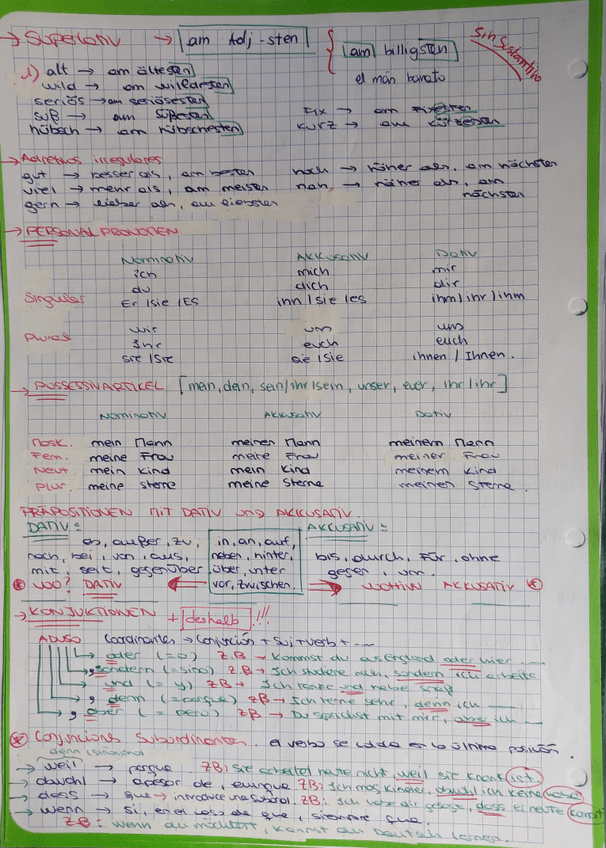 → SUPERLATIV → am Adj-sten { am billigsten sin sustantivo
el más barato
alt → am ältesten
wild → am wildesten
seriös → am seriösesten
süß → am süßesten fix → am fixesten
hübsch → am hübschesten kurz → am kürzesten
→ Adjetivos irregulares
gut → besser als, am besten hoch → höher als, am höchsten
viel → mehr als, am meisten nah → näher als, am nächsten
gern → lieber als, am liebsten
→ PERSONALPRONOMEN
Nominativ Akkusativ Dativ
ich mich mir
du dich dir
Singular Er/sie/Es ihn/sie/es ihm/ihr/ihm
Plural wir uns uns
Ihr euch euch
sie/Sie sie/Sie ihnen/Ihnen.
→ POSSESSIVARTIKEL [mein, dein, sein/ihr/sein, unser, euer, ihr/Ihr]
Nominativ Akkusativ Dativ
Mask. mein Mann meinen Mann meinem Mann
Fem. meine Frau meine Frau meiner Frau
Neut mein Kind mein Kind meinem Kind
Plur. meine Sterne meine Sterne meinen Sterne.
PRÄPOSITIONEN MIT DATIV UND AKKUSATIV.
DATIV: AKKUSATIV:
ab, außer, zu, in, an, auf,
nach, bei, von, aus, neben, hinter, bis, durch, für, ohne
mit, seit, gegenüber über, unter gegen, um.
WO? DATIV vor, zwischen. WOHIN AKKUSATIV
→ KONJUKTIONEN + deshalb !!!
ADUSO Coordinantes → Conjunción + Suj + verb + ...
oder (= o) z.B → Kommst du oder hier
, sondern (= sino) z.B → Ich studiere nich, sondern ich arbeite
und (= y) z.B → Ich und habe
, denn (= porque) z.B → Ich lerne sehr, denn ich
, aber (= pero) z.B → Du sprichst mit mir, aber ich
Conjuncions Subordinantes. el verbo se coloca en la última posición.
denn (sinónimo)
→ weil → porque z.B: Sie arbeitet heute nicht, weil sie krank ist.
→ obwohl → apesar de, aunque z.B: Ich mag Kinder, obwohl ich keine habe
→ dass → que → introduce una subord. z.B: Ich habe dir gesagt, dass er heute kommt
→ wenn → si, en el caso de que, siempre que.
z.B: wenn du möchtest, kannst du Deutsch lernen.